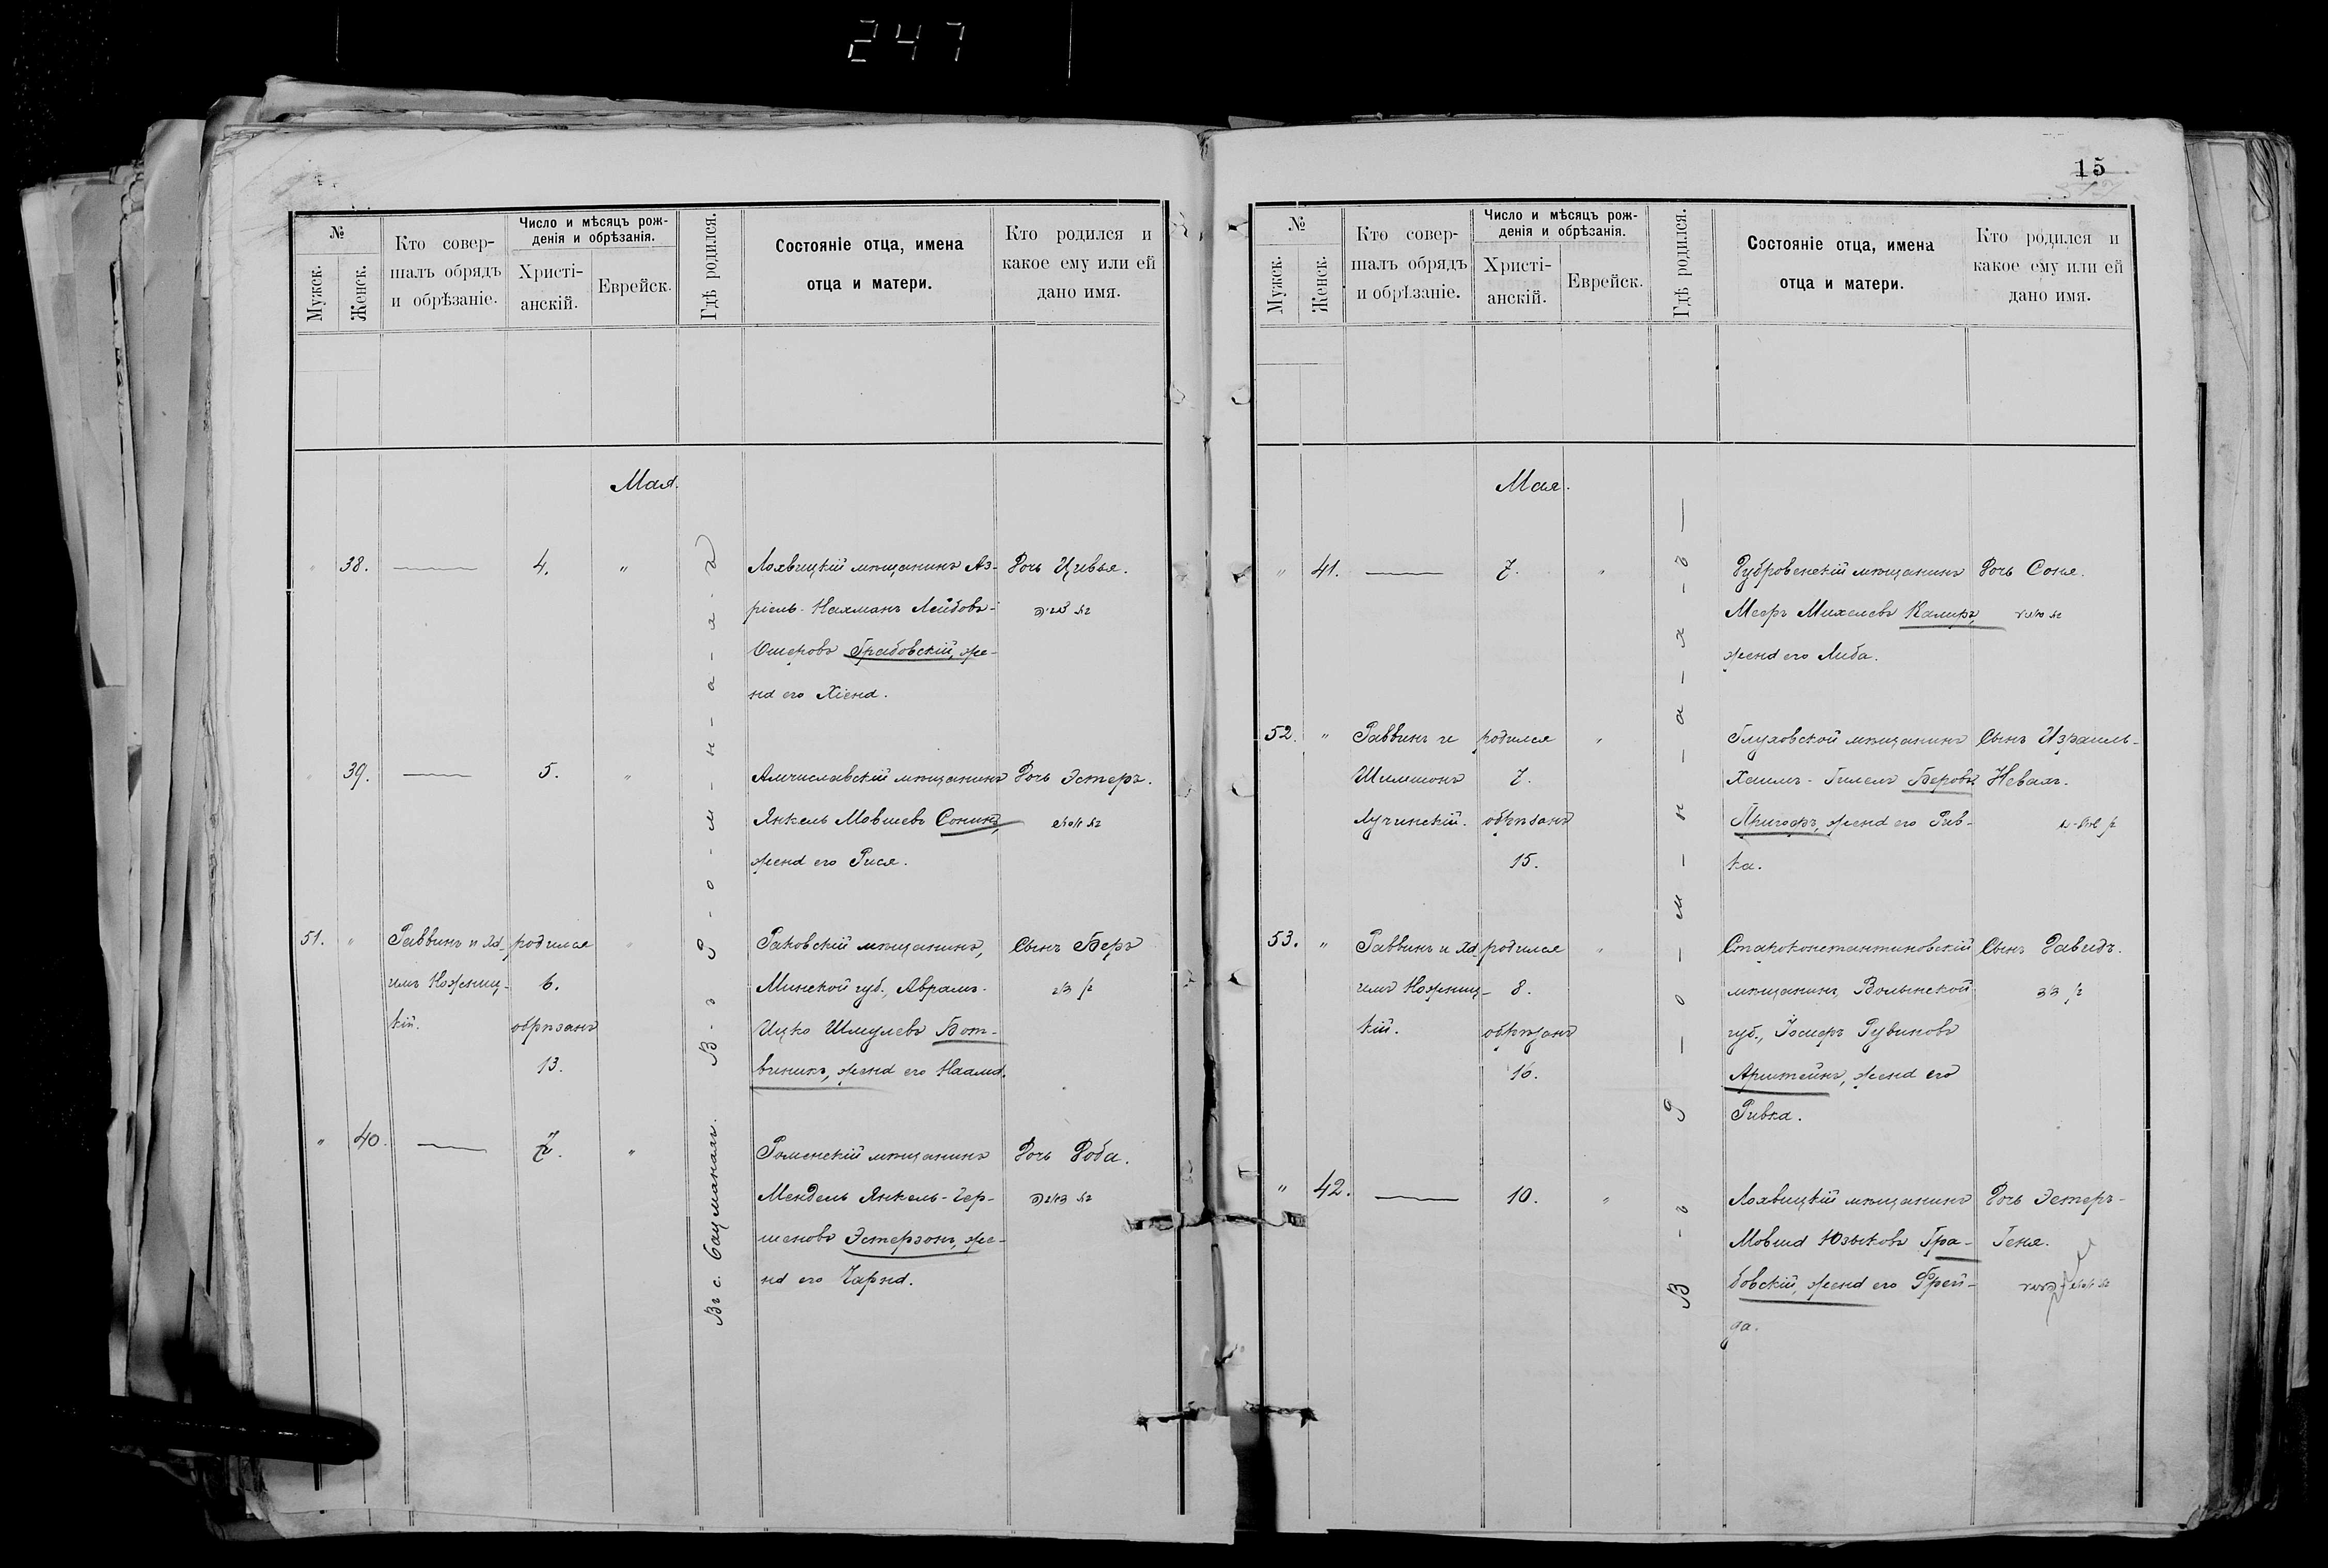 247
№
Мужск.
Женск.
Кто совер-
шалъ обрядъ
и обрѣзаніе.
Число и мѣсяцъ рож-
денія и обрѣзанія.
Христі-
анскій.
Еврейск.
Гдѣ родился.
Состояніе отца, имена
отца и матери.
Кто родился и
какое ему или ей
дано имя.
Мая.
В-ъ Р-о-м-н-а-х-ъ
38.
4.
Лохвицкій мѣщанинъ Аз-
ріель-Нахманъ Лейбовъ-
Ошеровъ Грабовскій, же-
на его Хіена.
Дочь Цивья.
39.
5.
мѣщанинъ
Янкель Мовшевъ Сонинъ,
жена его Рися.
Дочь Эстеръ.
51.
Раввинъ и Ха-
имъНожниц-
кій.
родился
6.
обрѣзанъ
13.
Раковскій мѣщанинъ,
Минской губ., Аврамъ-
Ицко Шмулевъ Бот-
виникъ, жена его Наама.
Сынъ Беръ
40.
7.
Въ с. Бацманахъ.
Роменскій мѣщанинъ
Мендель Янкель-Гер-
шеновъ Эстерзонъ, же-
на его Чарна.
Дочь Доба.
15
№
Мужск.
Женск.
Кто совер-
шалъ обрядъ
и обрѣзаніе.
Число и мѣсяцъ рож-
денія и обрѣзанія.
Христі-
анскій.
Еврейск.
Гдѣ родился.
Состояніе отца, имена
отца и матери.
Кто родился и
какое ему или ей
дано имя.
Мая.
В-ъ Р-о-м-н-а-х-ъ
41.
7.
Дубровенскій мѣщанинъ
Мееръ Михелевъ Каликъ,
жена его Либа.
Дочь Соня.
52.
Раввинъ и
Шимшонъ
Лучинскій.
родился
7.
обрѣзанъ
15.
Глуховской мѣщанинъ
Хаимъ-Гилель Беровъ
жена его Рив-
ка.
Сынъ Израиль-
Невахъ.
53.
Раввинъ и Ха-
имъНожниц-
кій.
родился
8.
обрѣзанъ
16.
Староконстантиновскій
мѣщанинъ, Волынской
губ., Іосифъ Рувиновъ
жена его
Ривка.
Сынъ Давидъ.
42.
10.
Лохвицкій мѣщанинъ
Мовша Юзыковъ Гра-
бовскій, жена его Фрей-
да.
Дочь Эстеръ-
Геня.